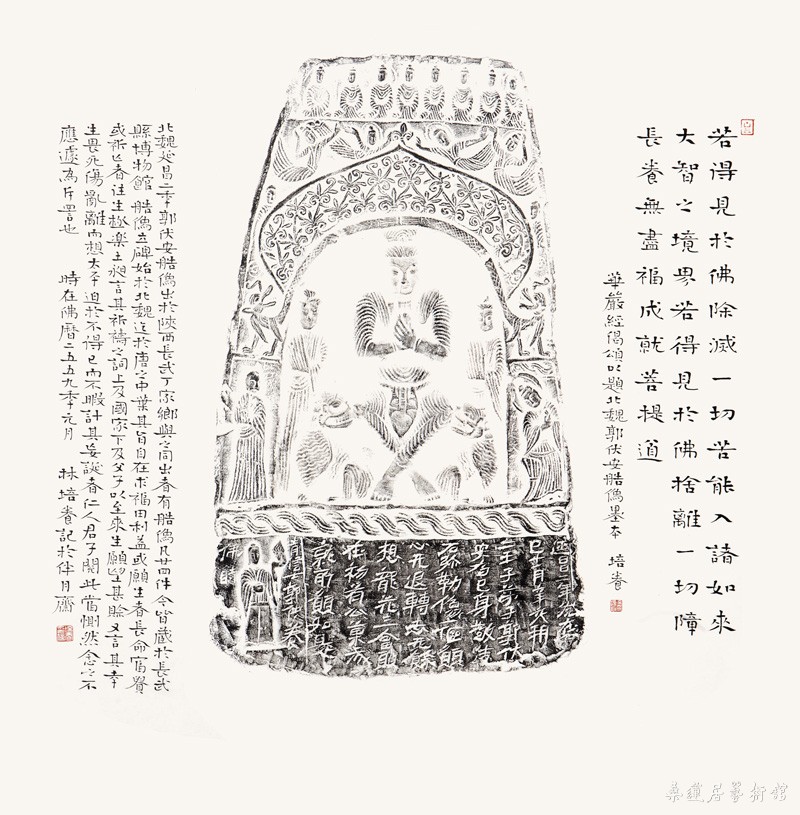 若得見於佛除滅一切苦能入諸如來
大智之境界若得見於佛捨離一切障
長養無盡福成就菩提道
華嚴經偈頌以題北魏郭伏安艁像墨本 培養
延昌二年
郭伏
安為己身敬造
想龍花三會
北魏延昌二年郭伏安艁像出於陝西長武丁家鄉與之同出者有艁像凡廿四件今皆藏於長武
縣博物館 艁像立碑始於北魏迄於唐之中葉其旨自在求福田利益或願生者長命富貴
或祈亡者往生極樂土昶言其祈禱之詞上及國家下及父子以至來生願望甚賒又言其幸
生畏死傷亂離而想太平迫於不得已而不暇計其妄誕者仁人君子閱此當惻然念之不
應遽為斥詈也 時在佛曆二五五九年元月 林培養記於伴月齋
桑蓮居藝術館